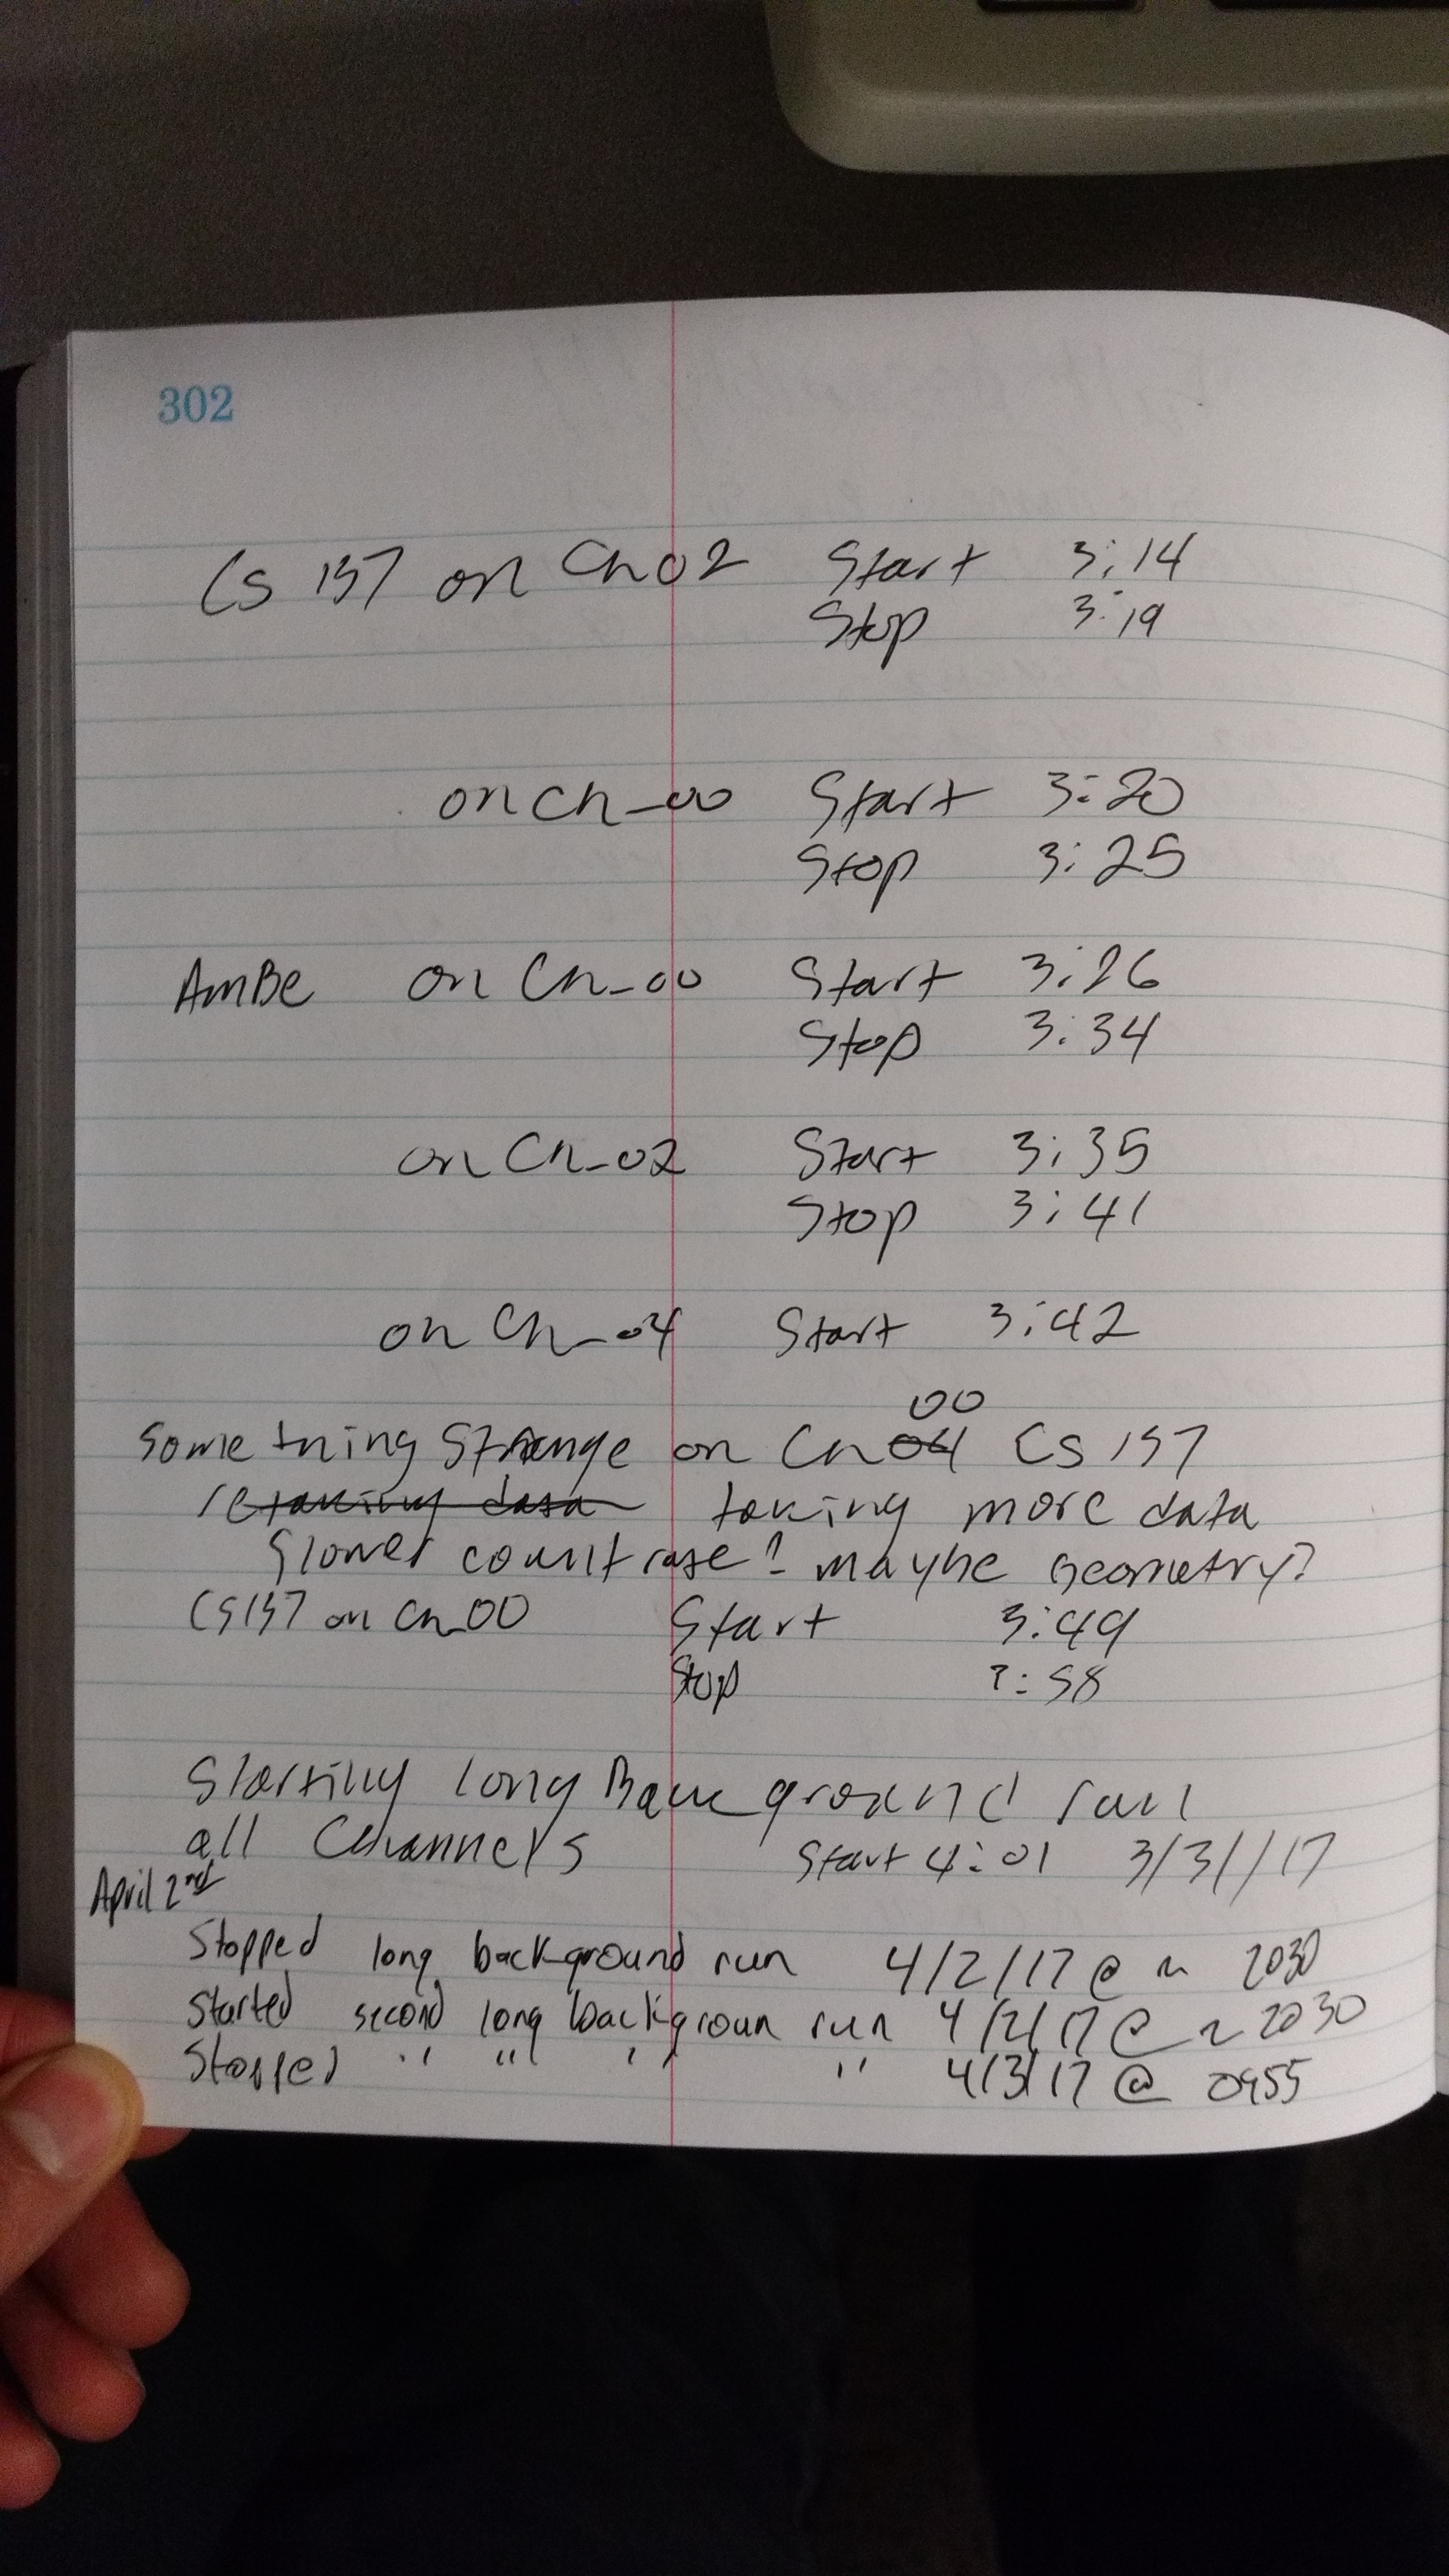 302
Cs 137 on Ch02 Start 3:14
Stop 3:19
on Ch_00 Start 3:20
Stop 3:25
AmBe on Ch_00 Start 3:26
Stop 3:34
on Ch_02 Start 3:35
Stop 3:41
on Ch_04 Start 3:42
00
Something Strange on Ch04 Cs 137
retaking data taking more data
Slower count rate? maybe geometry?
Cs137 on Ch_00 Start 3:49
Stop ?:58
Starting long Background run
all Channels Start 4:01 3/31/17
April 2nd
Stopped long background run 4/2/17 @ ~ 2030
Started second long backgroun run 4/2/17 @ ~ 2030
Stopped " " " " 4/3/17 @ 0955